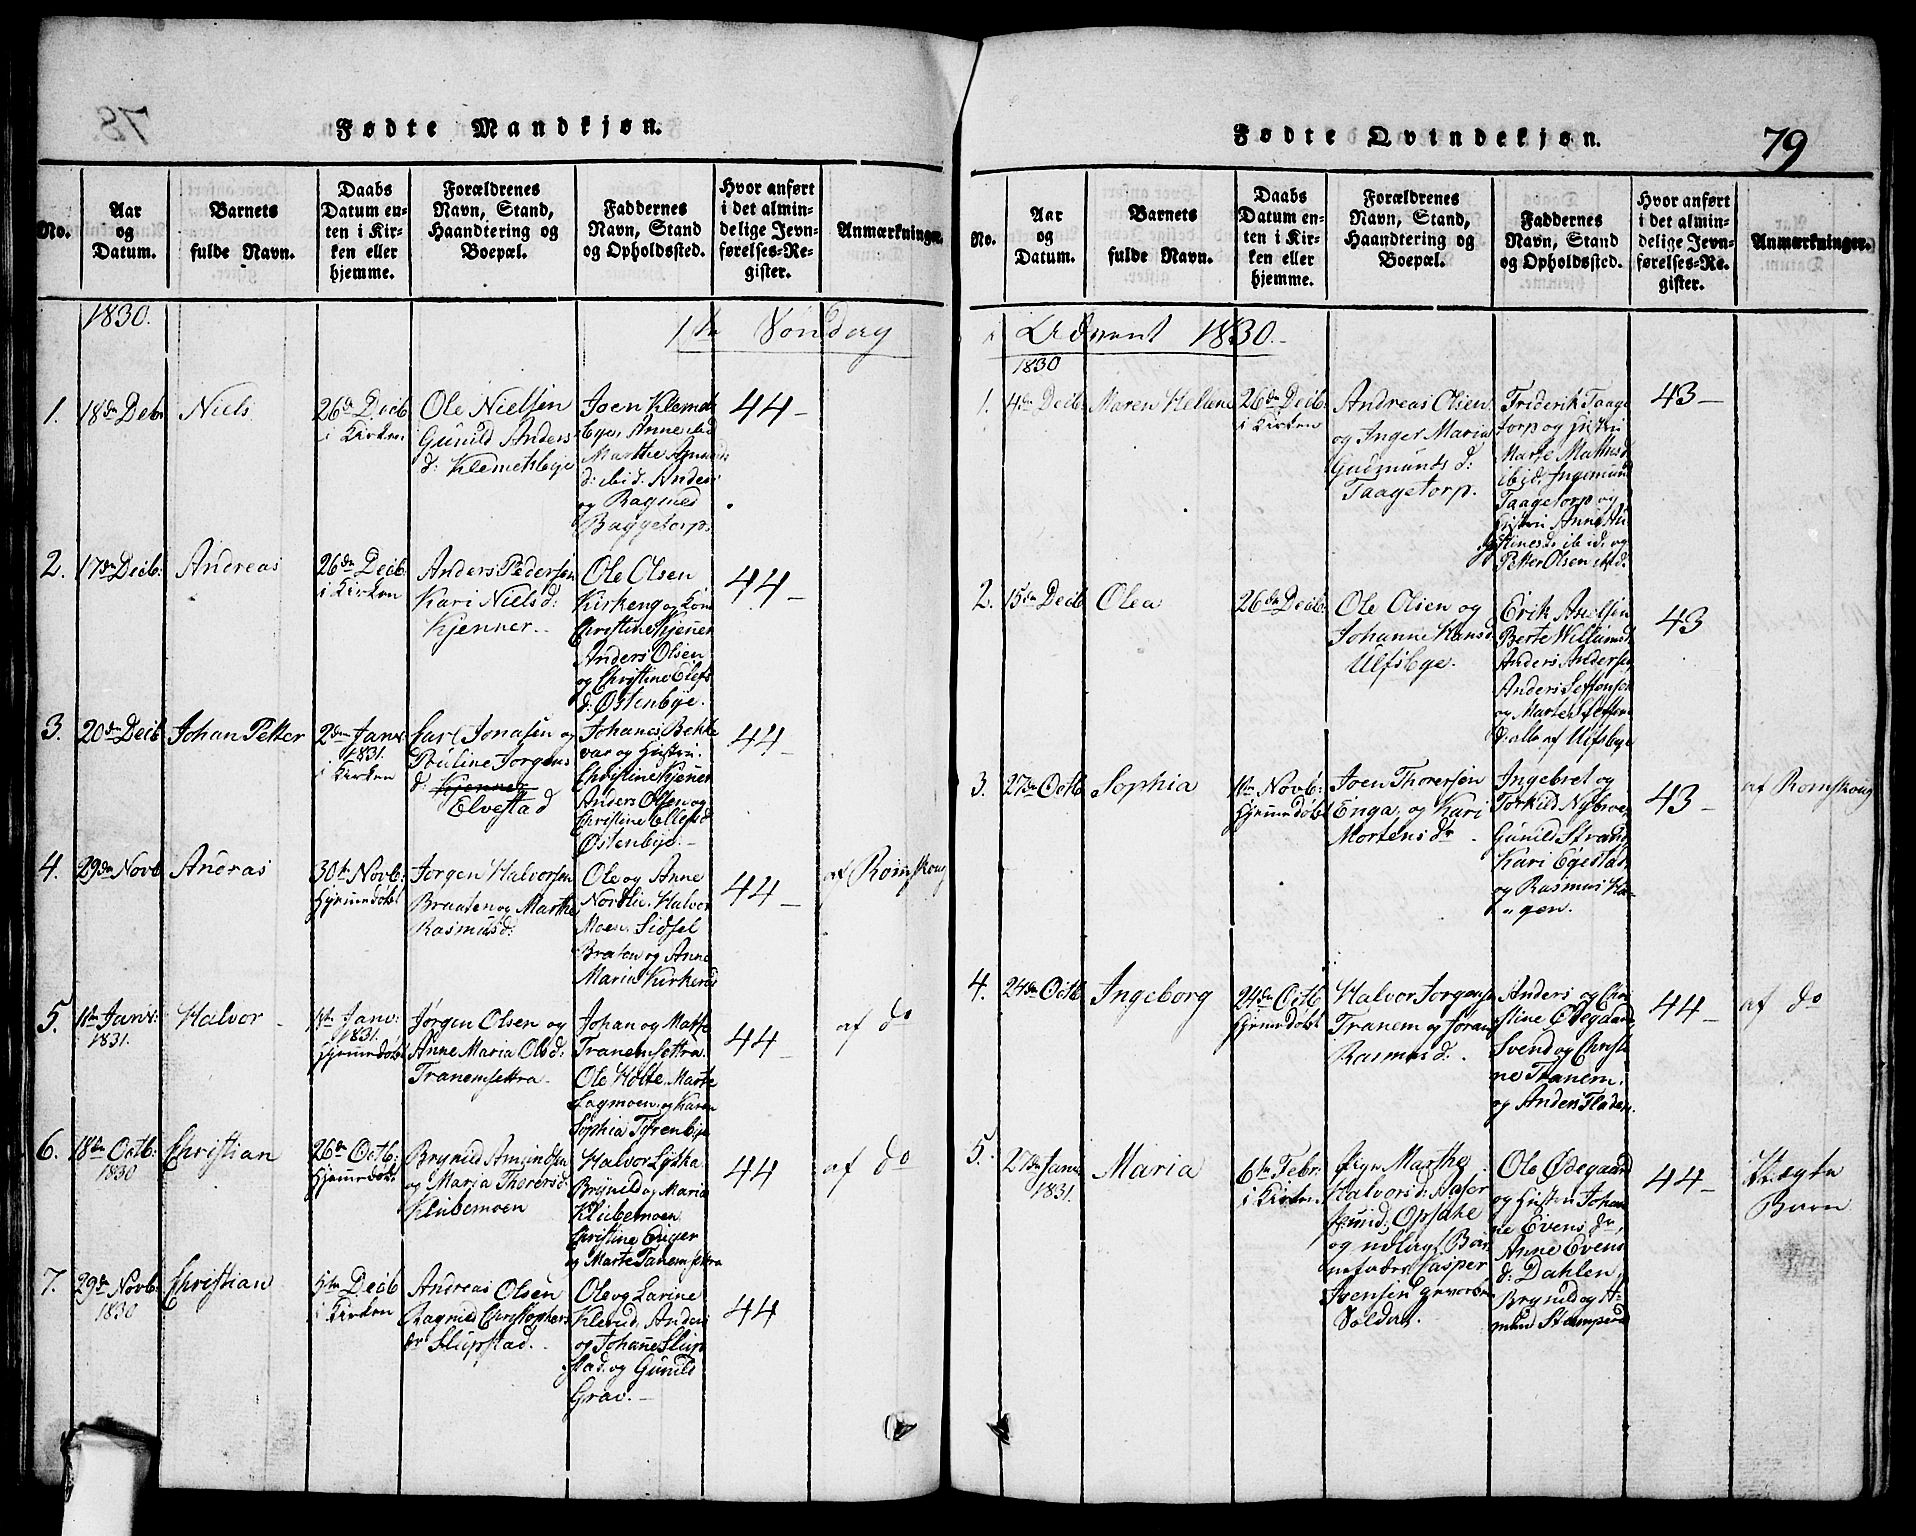 78.
Fødte Mandkjøn.
No.
Aar
og
Datum.
Barnets
fulde Navn.
Daabs
Datum en-
ten i Kir-
ken eller
hjemme.
Forældrenes
Navn, Stand,
Haandtering og
Boepæl.
Faddernes
Navn, Stand
og Opholdssted.
Hvor anført
i det almin-
delige Jevn-
førelses-Re-
gister.
Anmærkninger.
1830.
1ste Søndag
1.
18de Decb
Niels
26de Decb
i Kirken
Ole Nielsen
Gunild Anders
d: Klemetsbye
Joen Klemets
bye, Anne ibid
Marthe
d: ibid: Anders
og Ragnild
Baggetorp.
44 –
2.
17de Decb:
Andreas
26de Decb:
i Kirken
Anders Pedersen
Kari Niels d:
Kjenner.
Ole Olsen
Kirkeng og Kone
Christine Kjener
Anders Olsen
og Christine Elefs
d: Østenbye.
44 –
3.
20de Decb
Johan Petter
2den Janv:
1831.
i Kirken
Carl Jonasen og
Pouline Jorgens
d: Kjenner
Elvestad
Johanes Bekke
var og Hustru.
Christine Kjener
Anders Olsen og
Christine Ellefsd:
Østenbye.
44 –
4.
29de Novb
Andras
30te Novb:
Hjemmedøbt
Jorgen Halvorsen
Braaten og Marthe
Rasmusd:
Ole og Anne
Nordli, Halvor
Moen, Sidsel
Braten og Anne
Maria Kirkerud
44 –
af Romskoug
5.
11te Janv:
1831.
Halvor
Janv:
1831.
Hjemmedøbt
Jørgen Olsen og
Anne Maria Olsd:
Tranemsettra
Johan og Matte
Tranemsettra.
Ole Holte, Marte
Sagmoen og Karen
Sophia Tyrenbye
44 –
af do
6.
18de Octb:
1830
Christian
26de Octb:
Hjemmedøbt
Brynild Amundsen
og Maria Thorersd:
Klubemoen
Halvor Lytka
Brynild og Maria
Klubemoen
Christine Eriger
og Marte Tanemsettra
44
af do
7.
29de Novb:
1830
Christian
5te Decb
i Kirken
Andreas Olsen
Ragnild Christophers
dr Slupstad.
Ole og Larine
Klevud, Anders
og Johane Slup
stad og Gunild
Grav.
44
79
Fødte Qvindekjøn.
No.
Aar
og
Datum.
Barnets
fulde Navn.
Daabs
Datum en-
ten i Kir-
ken eller
hjemme.
Forældrenes
Navn, Stand,
Haandtering og
Boepæl.
Faddernes
Navn, Stand
og Opholdssted.
Hvor anført
i det almin-
delige Jevn-
førelses-Re-
gister.
Anmærkninger.
i Advent 1830.
1830
1.
4de Decb
Maren Helene
26de Decb:
i Kirken
Andreas Olsen
og Inger Maria
Gudmunds d:
Taagetorp.
Friderik Taage
torp og Hustru
Marte Mathisd
ibid, Ingemund
Taagetorp og
Hustru Anne
ibid, og
Petter Olsen ibid:
43 –
2.
15de Decb
Olea
26de Decb:
Ole Olsen og
Johanne Hansd
Ulfsbye.
Erik Axelsen
Berte Willumsd
Anders Andersen,
Anders Seffensen
og Marte Seffens
d: alle af Ulfsbye
43
3.
27de Octb
Sophia
Novb:
Hjemmedøbt
Joen Thorersen
Enga, og Kari
Mortens dr
Ingebret og
Torkild Nybroe,
Gunild Strand,
Kari Egestad,
og Rasmus Ha-
gen.
43 –
af Romskoug
4.
24de Octb
Ingeborg
24de Octb
Hjemmedøbt
Halvor Jorgense
Tranem og Joran
Rasmus d:
Anders og Chri-
stine Ødegaard,
Svend og Christi
ne Tranem.
og Anders Fladen.
44 –
af do
5.
27de Janv:
1831.
Maria
6te Febr:
i Kirken
Pige Marthe
Halvorsd: Aaser
sund, Opsahe
og udlagt Bar-
nefader Casper
Ivensen gevorben
Soldat.
Ole Ødegaard
og Hustru Johan
ne Evens dr,
Anne Evens
d: Dahlen,
Brynild og A-
mund Stomperud
44 –
Uægte
Barn